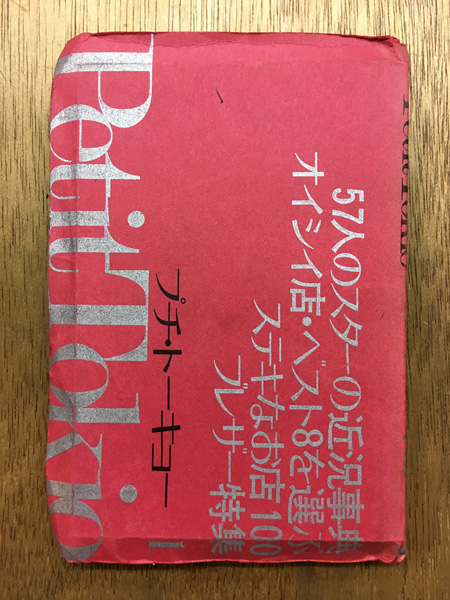 57人のスターの近況事典
オイシイ店・ベスト8を選ぶ
ステキなお店100
ブレザー特集
プチ・トーキョー
Petit Tokio